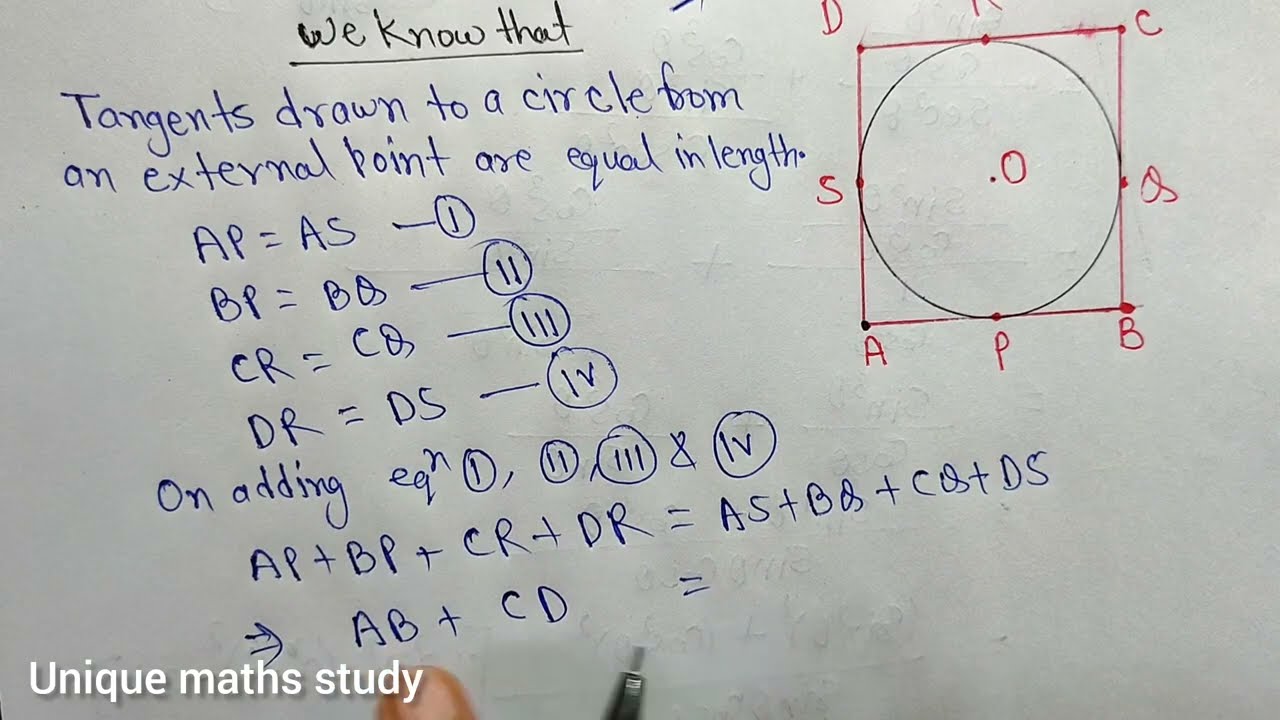 We Know that
Tangents drawn to a circle from
an external point are equal in length.
AP = AS — I
BP = BQ — II
CR = CQ — III
DR = DS — IV
On adding eqn I, II, III & IV
AP+BP+CR+DR = AS+BQ+CQ+DS
⇒ AB + CD =
D R C
S .O Q
A P B
Unique maths study